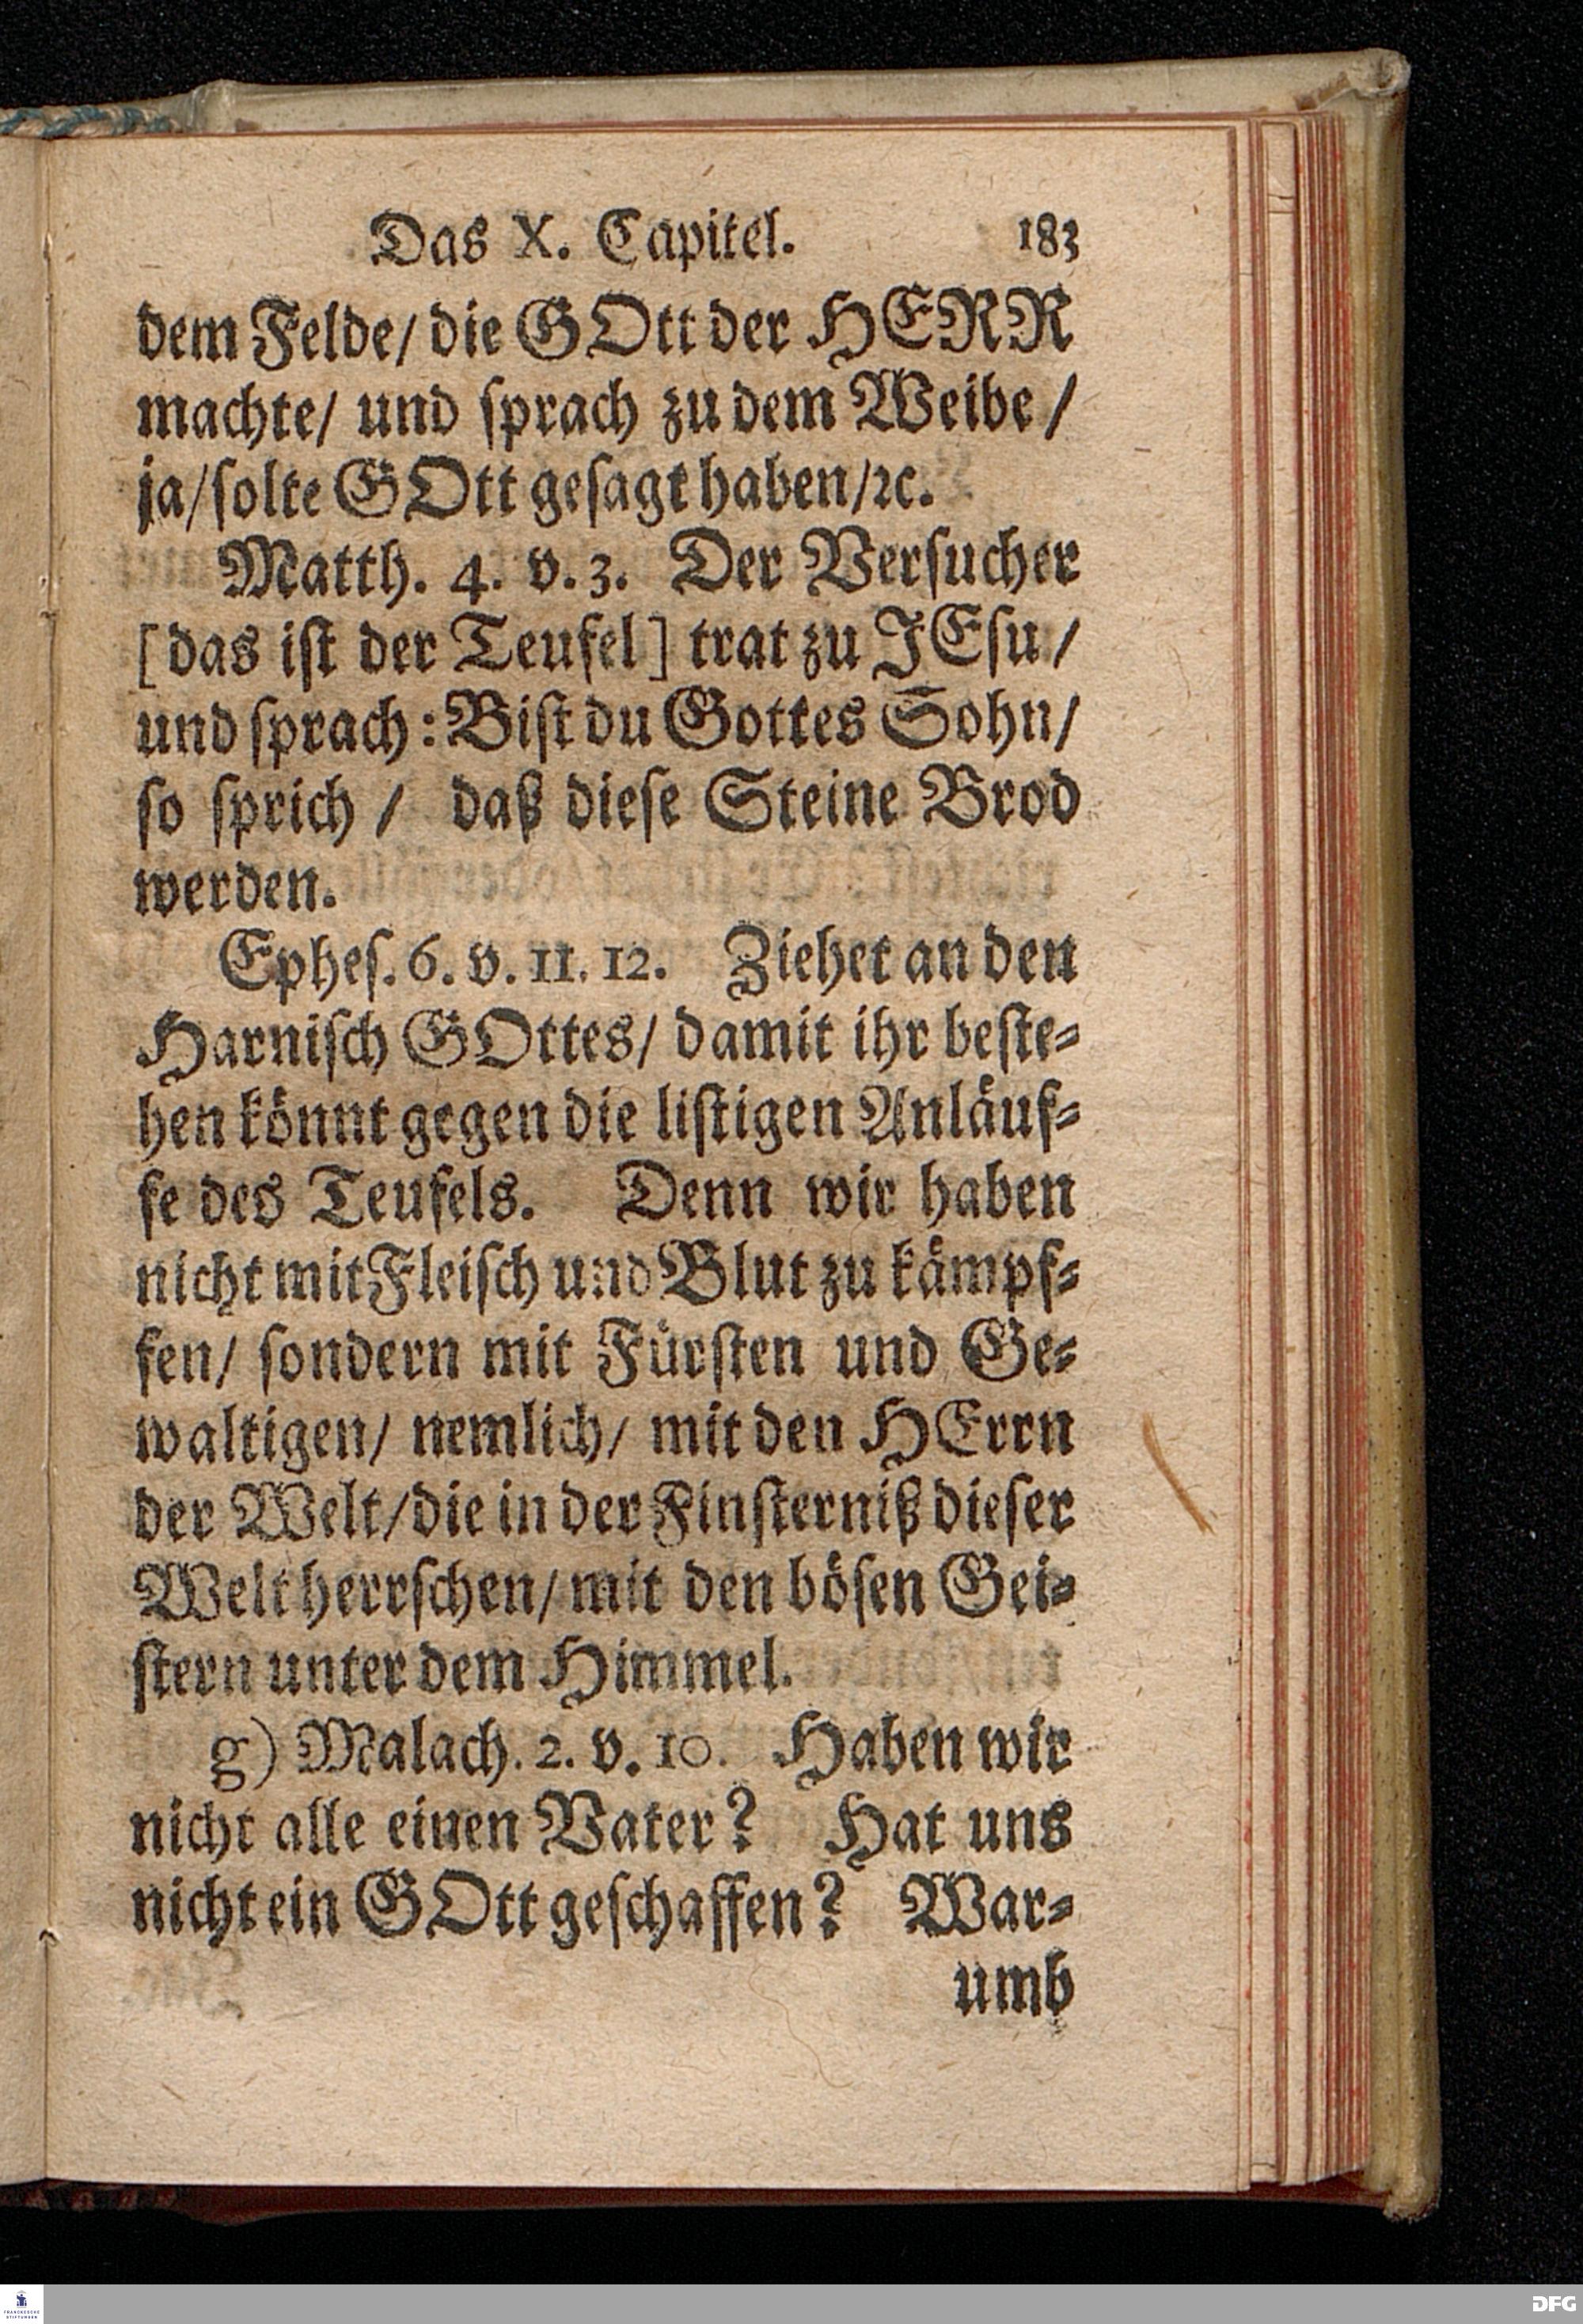 Das X. Capitel. 183
dem Felde/ die GOtt der HERR
machte/ und ſprach zu dem Weibe/
ja/ ſolte GOtt geſagt haben/ ꝛc.
Matth. 4. v. 3. Der Verſucher
[das iſt der Teufel] trat zu JEſu/
und ſprach: Biſt du Gottes Sohn/
ſo ſprich/ daß dieſe Steine Brod
werden.
Epheſ. 6. v. 11. 12. Ziehet an den
Harniſch GOttes/ damit ihr beſte-
hen könnt gegen die liſtigen Anläuf-
fe des Teufels. Denn wir haben
nicht mit Fleiſch und Blut zu kämpf-
fen/ ſondern mit Fürſten und Ge-
waltigen/ nemlich/ mit den HErrn
der Welt/ die in der Finſterniß dieſer
Welt herrſchen/ mit den böſen Gei-
ſtern unter dem Himmel.
g) Malach. 2. v. 10. Haben wir
nicht alle einen Vater? Hat uns
nicht ein GOtt geſchaffen? War-
umb
FRANCKESCHE
STIFTUNGEN
DFG